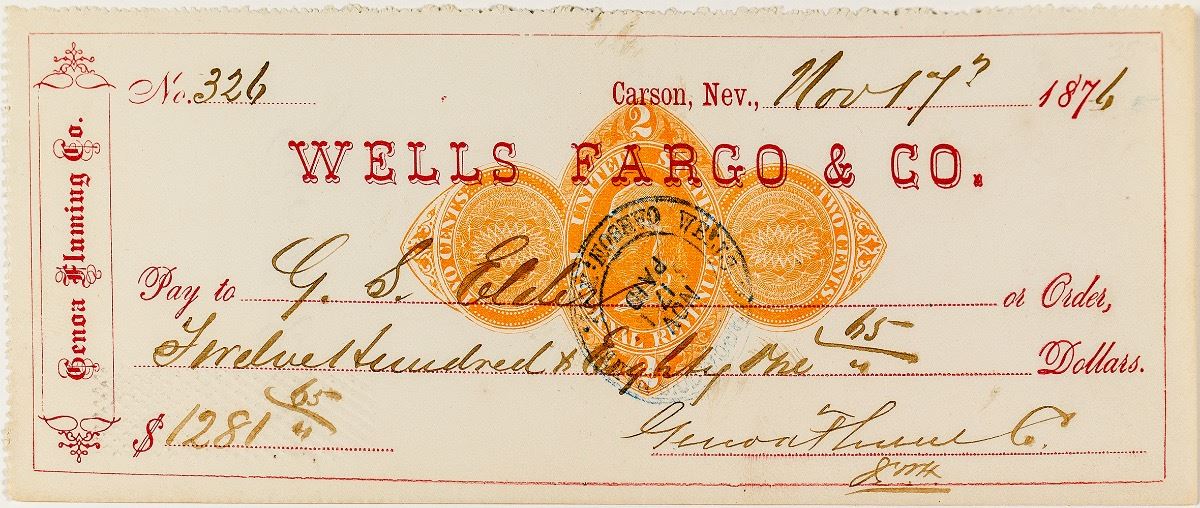 Genoa Fluming Co.
No. 326 Carson, Nev., Nov 17th 1876
WELLS FARGO & CO.
2
UNITED STATES
TWO CENTS TWO CENTS
INTERNAL REVENUE
PAID
NOV
17
Pay to G. S. Elder or Order,
Twelve Hundred & Eighty One 65/" Dollars.
$ 1281 65/"
Genoa Flume Co.